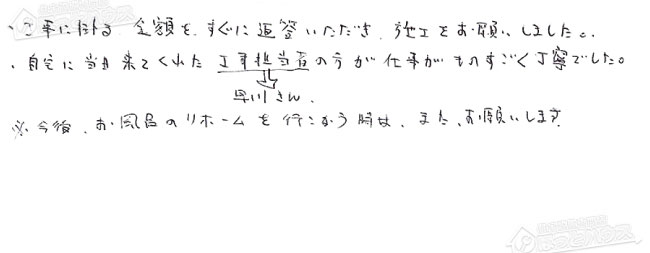 ・工事に関する金額を、すぐに返答いただき、施工をお願いしました。
・自宅に当日来てくれた工事担当者の方が仕事がものすごく丁寧でした。
早川さん.
※今後、お風呂のリホームを行こなう時は、また、お願いします